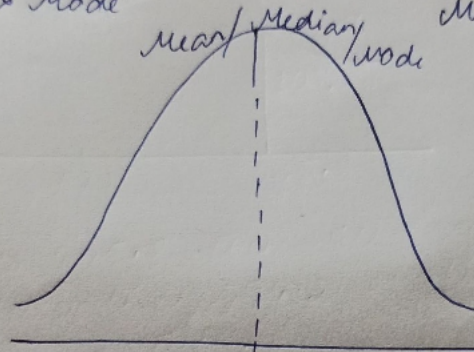 Mode
Mean/ Median/
Mode